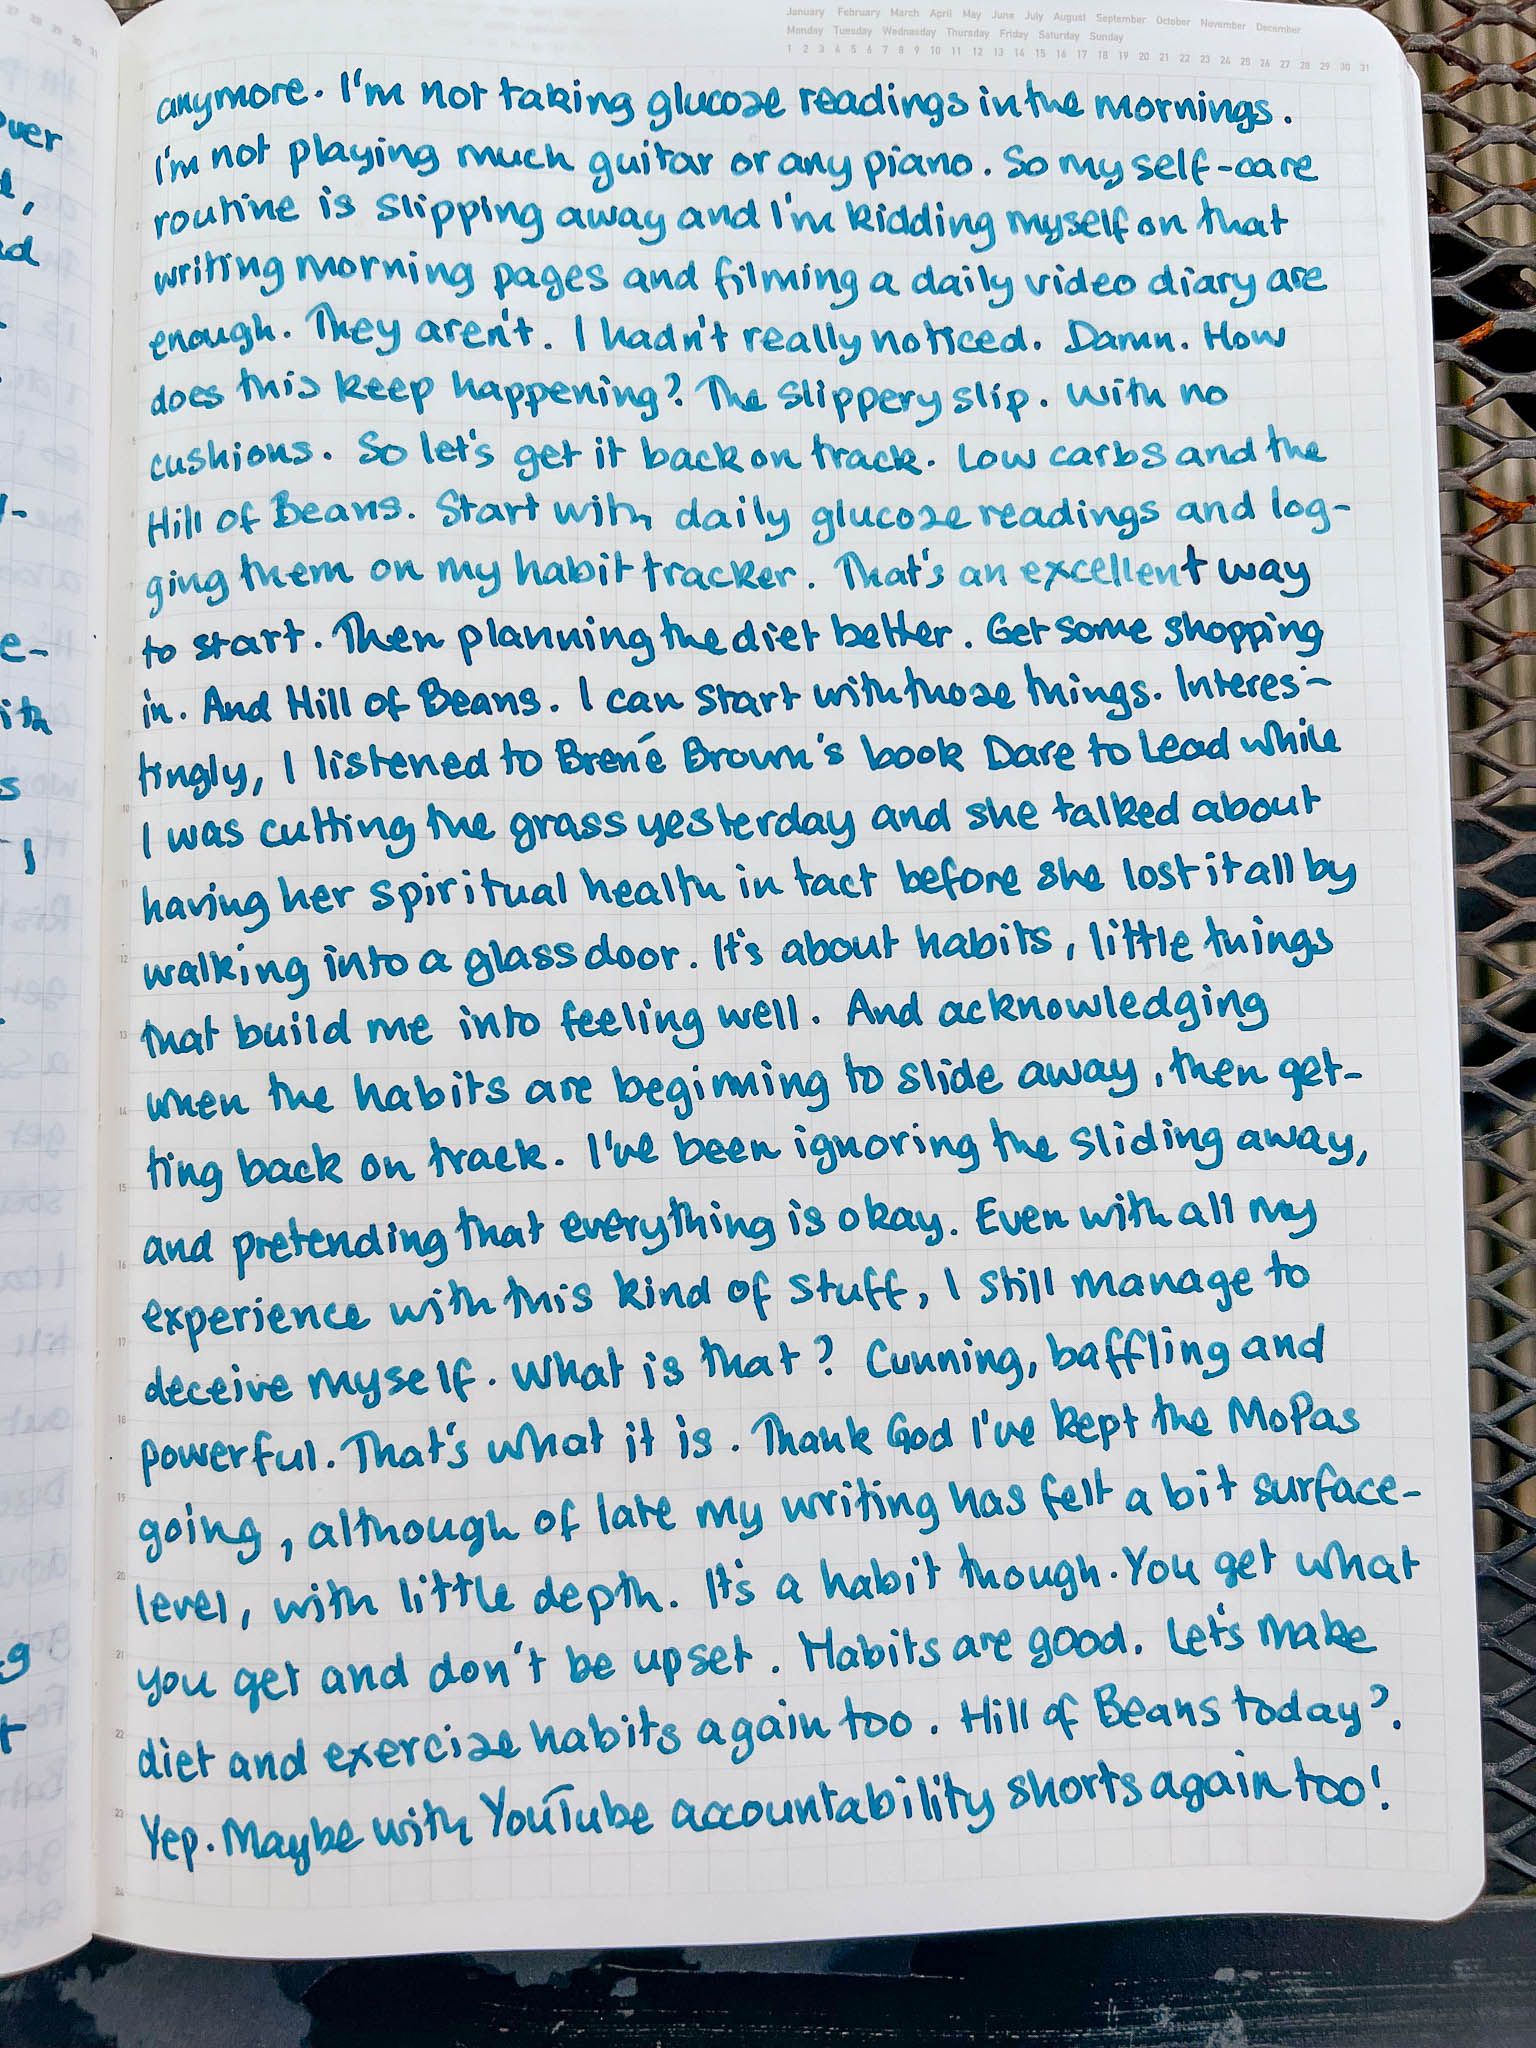 January February March April May June July August September October November December
Monday Tuesday Wednesday Thursday Friday Saturday Sunday
1 2 3 4 5 6 7 8 9 10 11 12 13 14 15 16 17 18 19 20 21 22 23 24 25 26 27 28 29 30 31
anymore. I'm not taking glucose readings in the mornings.
I'm not playing much guitar or any piano. So my self-care
routine is slipping away and I'm kidding myself on that
writing morning pages and filming a daily video diary are
enough. They aren't. I hadn't really noticed. Damn. How
does this keep happening? The slippery slip. With no
cushions. So let's get it back on track. Low carbs and the
Hill of Beans. Start with daily glucose readings and log-
ging them on my habit tracker. That's an excellent way
to start. Then planning the diet better. Get some shopping
in. And Hill of Beans. I can start with those things. Interes-
tingly, I listened to Brené Brown's book Dare to Lead while
I was cutting the grass yesterday and she talked about
having her spiritual health in tact before she lost it all by
walking into a glass door. It's about habits, little things
that build me into feeling well. And acknowledging
when the habits are beginning to slide away, then get-
ting back on track. I've been ignoring the sliding away,
and pretending that everything is okay. Even with all my
experience with this kind of stuff, I still manage to
deceive myself. What is that? Cunning, baffling and
powerful. That's what it is. Thank God I've kept the MoPas
going, although of late my writing has felt a bit surface-
level, with little depth. It's a habit though. You get what
you get and don't be upset. Habits are good. Let's make
diet and exercise habits again too. Hill of Beans today?
Yep. Maybe with YouTube accountability shorts again too!